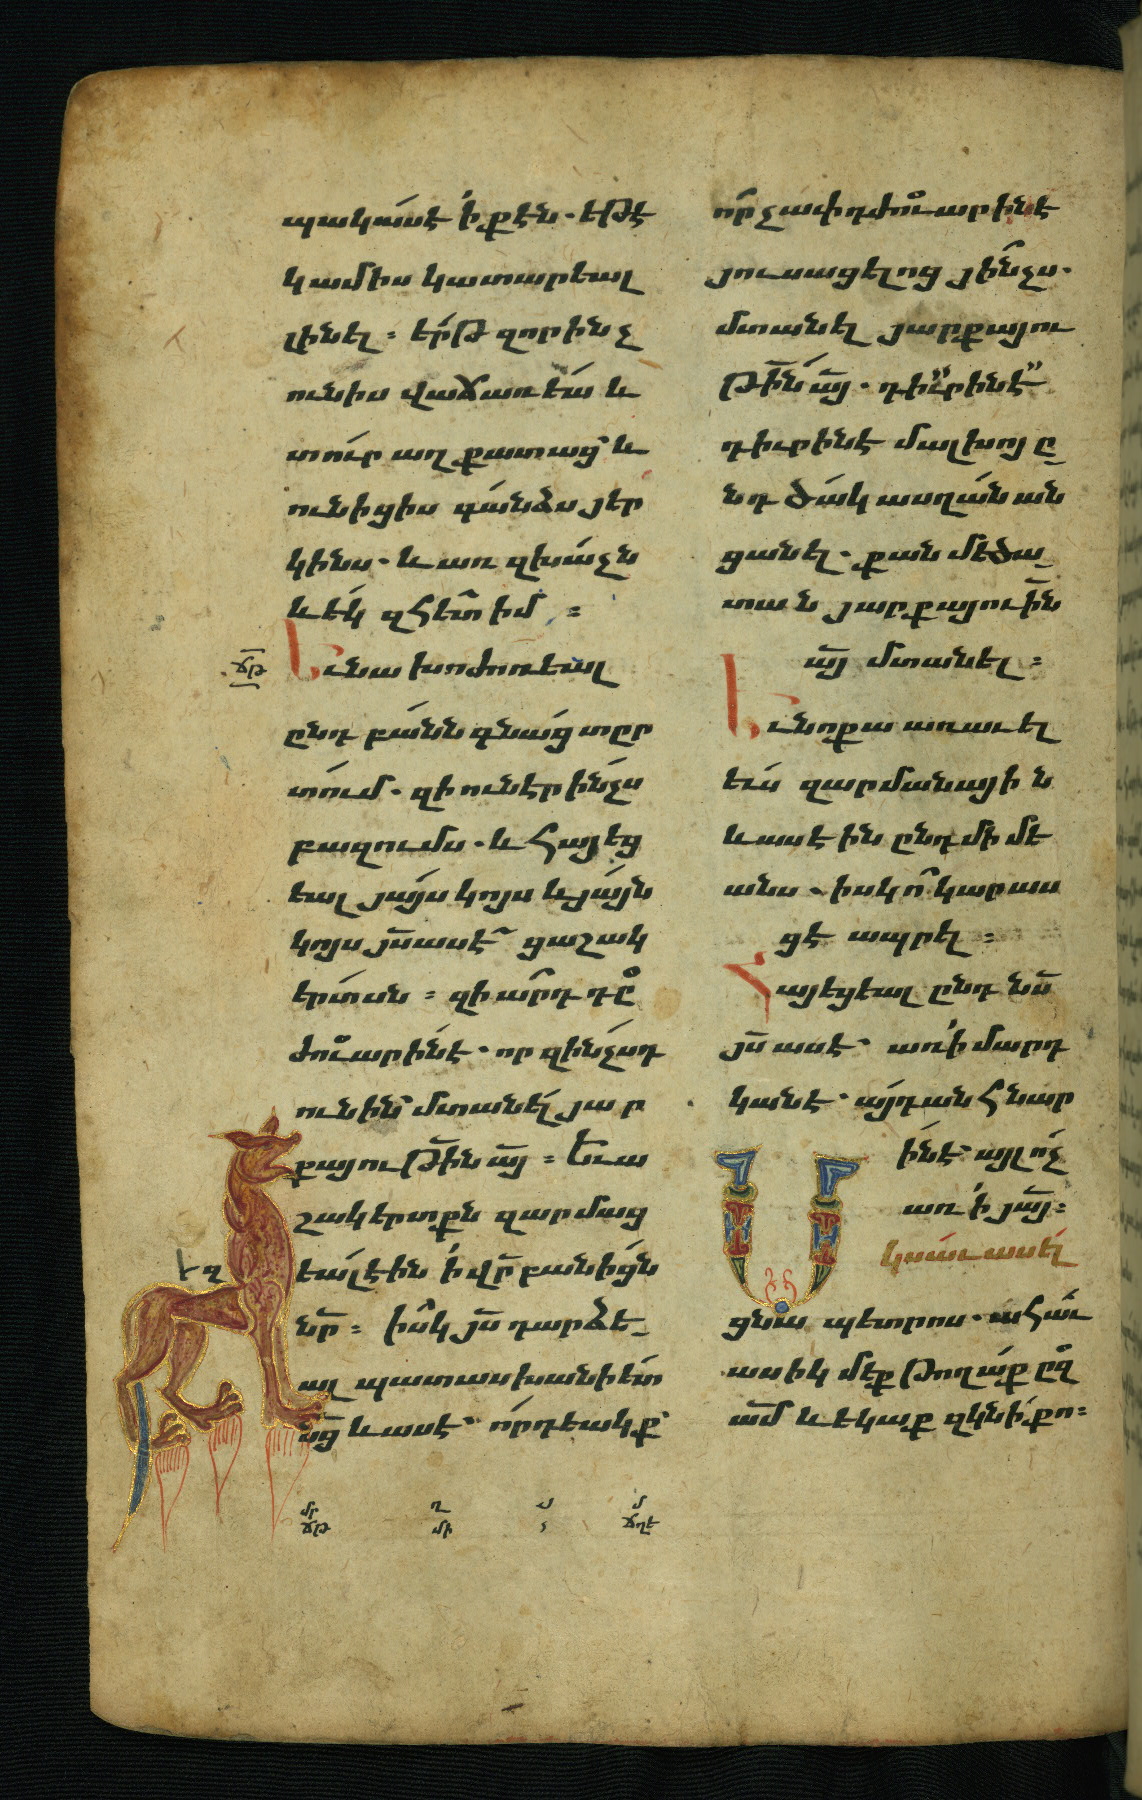 պակաս է ի քէն. եթէ
կամիս կատարեալ
լինել։ երթ զոր ինչ
ունիս վաճառեա և
տուր աղքատաց՝ և
ունիցիս գանձս յեր
կինս. և առ զխաչն
և եկ զհետ իմ։
ճթ
Եւ նա խոժոռեալ
ընդ բանն գնաց տըր
տում. զի ունէր ինչս
բազումս. և հայեց
եալ յայս կոյս և յայն
կոյս յս ասէ ցաշակ
երտսն։ զի արդ դը
ժուար ինէ. որ զինչսդ
ունին՝ մտանել յար
քայութին այ։ Եւ ա
շակերտքն զարմաց
եալ էին ի վր բանիցն
նր։ իսկ յս դարձե
ալ պատասխանի ետ
նց և ասէ՝ որդեակք՝
եզ
որչափ դժուար ինէ
յուսացելոց յինչս.
մտանել յարքայու
թին այ. դիւրինէ
դիւրին է մալխոյ ը
նդ ծակ ասղան ան
ցանել. քան մեծա
տան յարքայուին
այ մտանել։
Եւ նոքա առաւել
ևս զարմանային
և ասէին ընդ միմե
անս. իսկ ո կարաս
ցէ ապրել։
Հայեցեալ ընդ նս
յս ասէ. առ ի մարդ
կանէ. այդ անհնար
ինէ. այլ ոչ
առ ի յայ։
կսաւ ասել
ցնա պետրոս. ահաւ
ասիկ մեք թողաք ըզ
ամ և եկաք զկնի քո։
մր ճթ
ղ մի
մ ճղէ